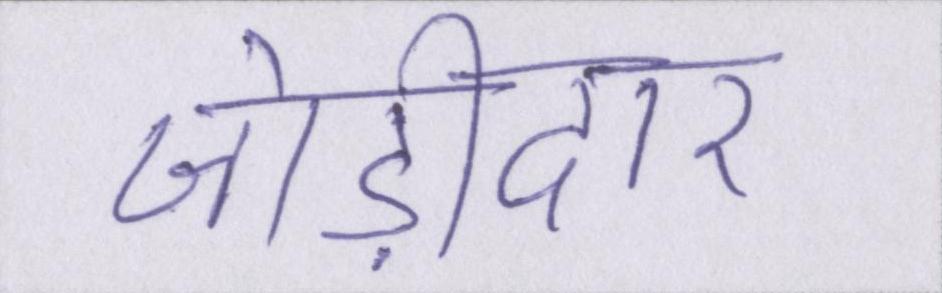 जोड़ीदार